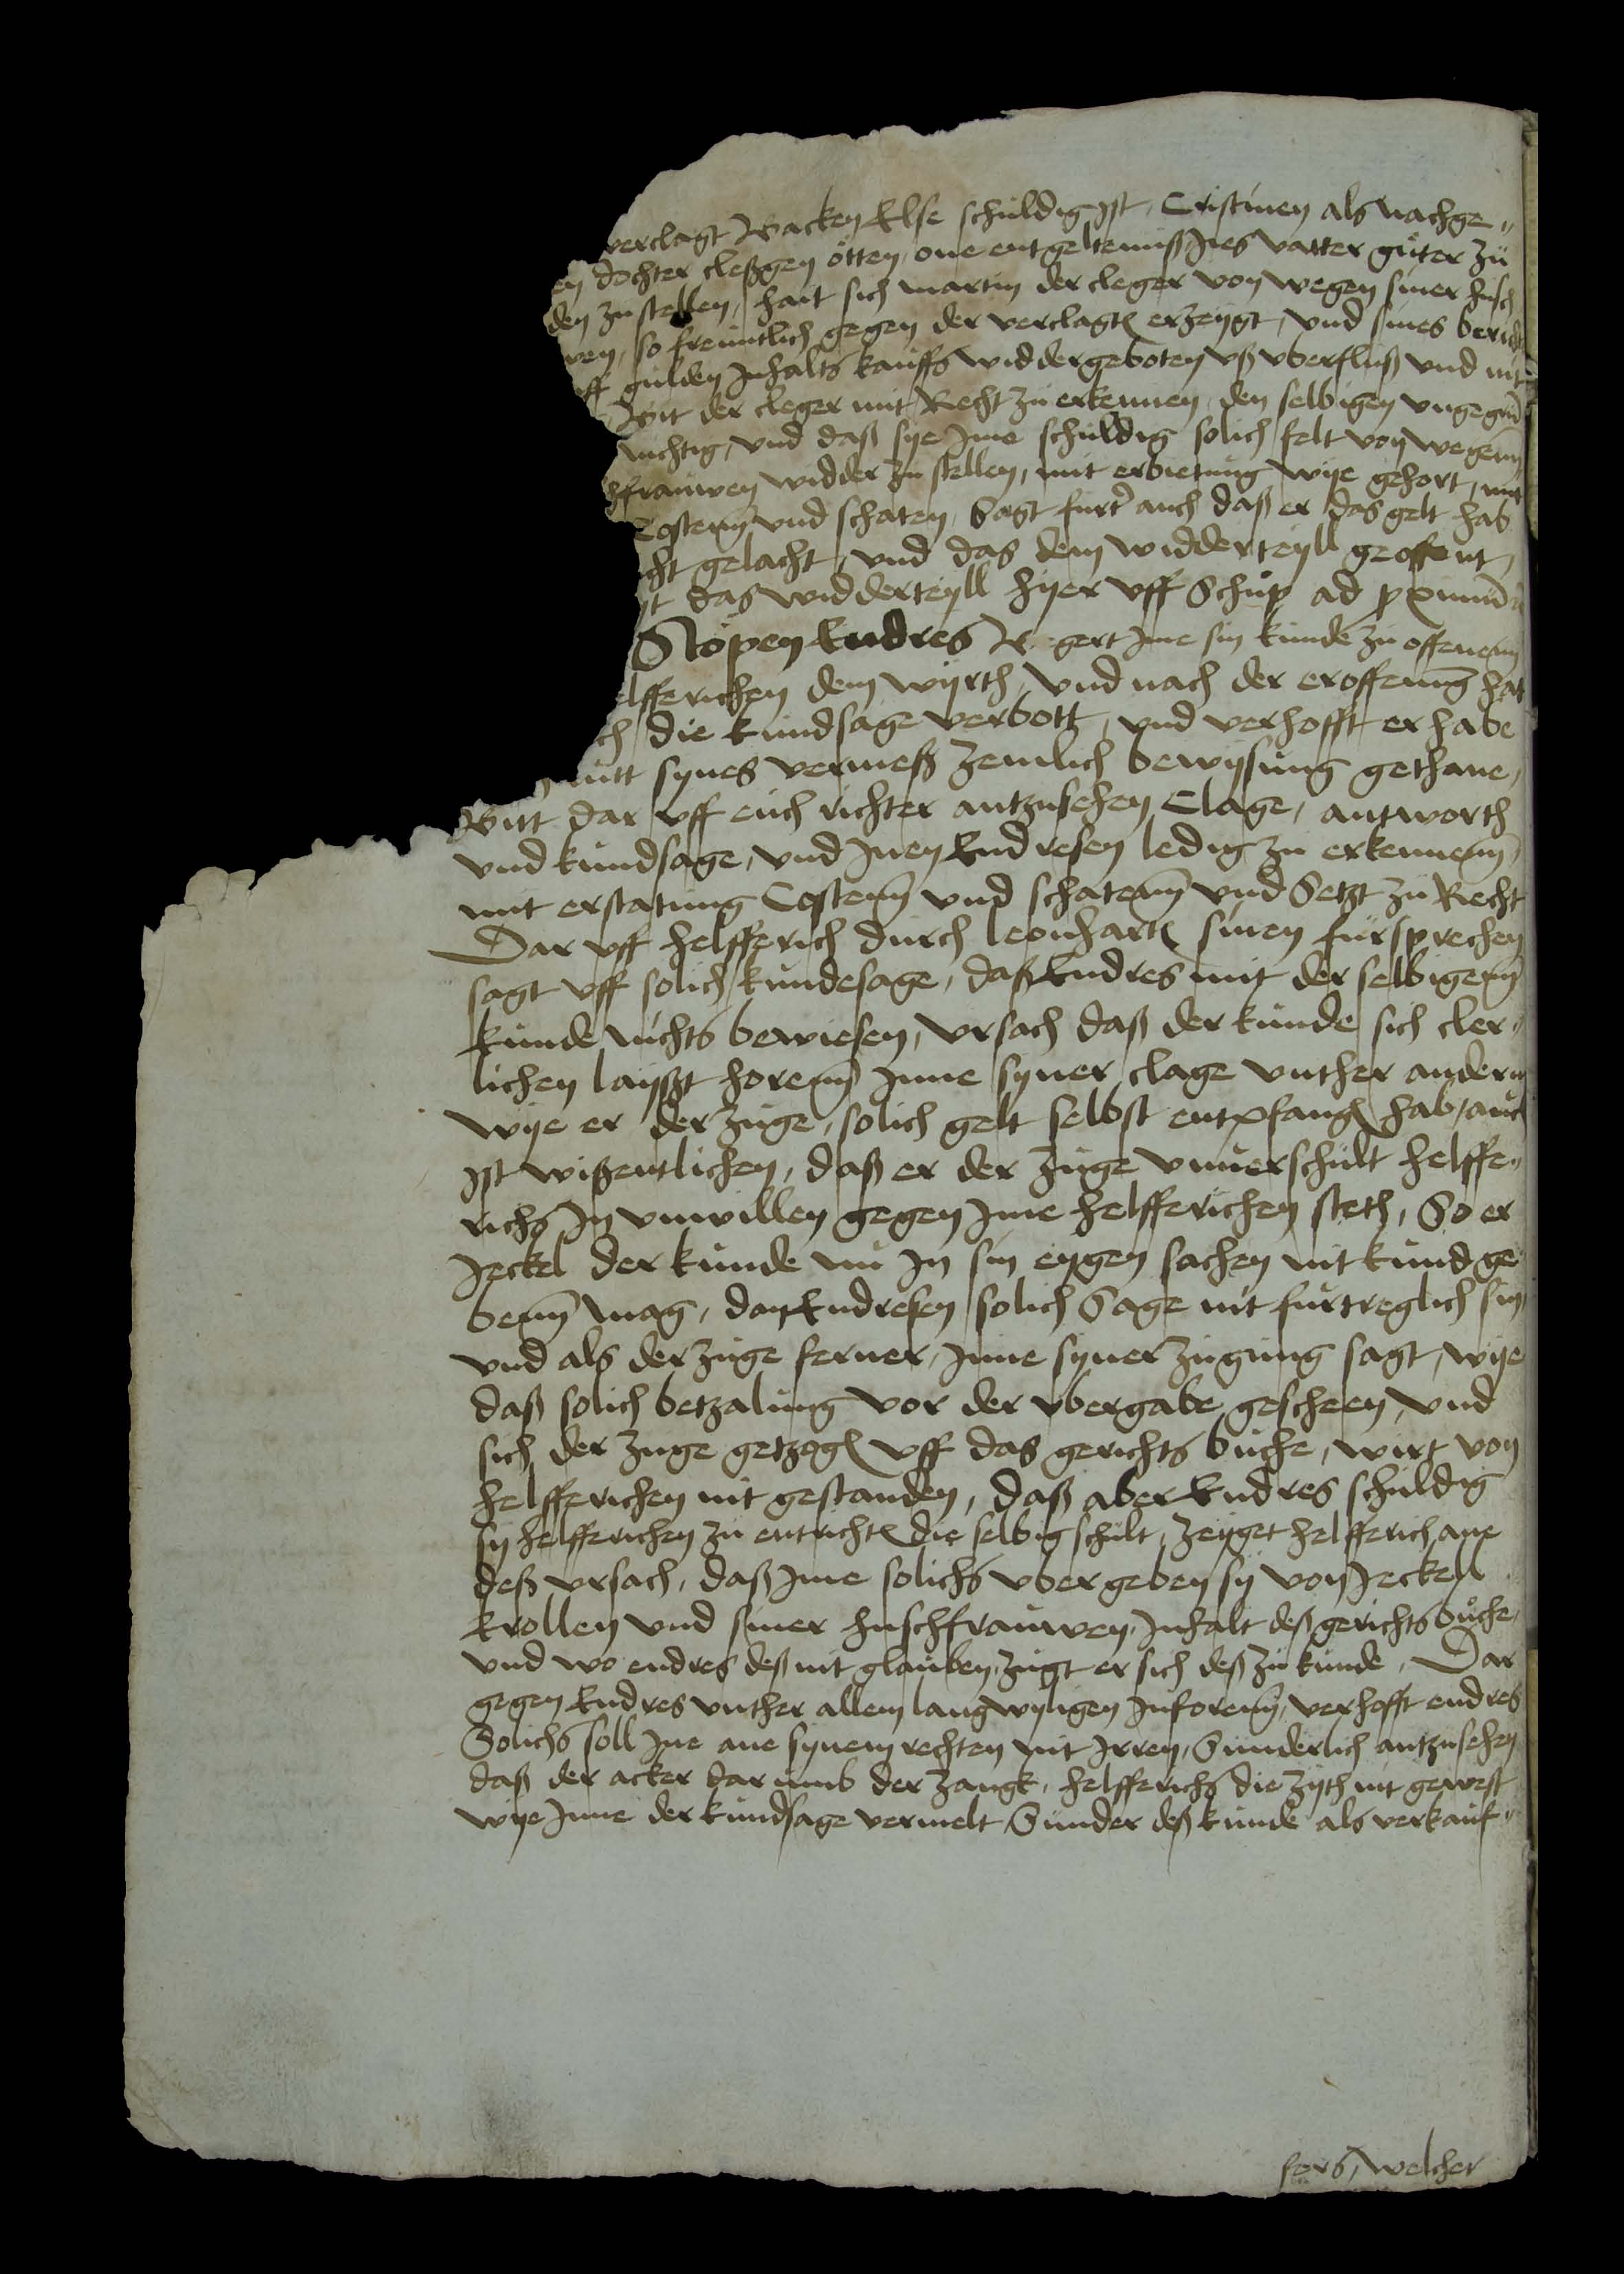 verclagt Wacken Else schuldig ist, Cristinen als nachge„
en dochter cleßgen ötten, one entgeltenuß Ires vatter guter zu
den zustellen, hait sich martin der cleger von wegen siner huſch
wen, so freuntlich gegen der verclagt erzeygt, und sines bericht
uff gulden Inhalts kauffs widdergeboten uß uberfluß und nit
Bit der cleger mit Recht zu erkennen, den selbigen
nichtig, und daß sye Ime schuldig solich felt von wegen
ffrauwen widder zu stellen, mit erbietung wye gehort, mit
Costenn und schaten, Sagt furt auch daß er das gelt hab
cht gelacht, und das dem widderteyll geoffent,
yt das widderteyll hyer uff Schup ad proximum
Nopen Endres Begert Ime sin kunde zu offenenn
elfferichen dem wyrth, und nach der eroffenung hat
ch die kundsage verbott, und verhofft er habe
mitt synes vermeß zemlich bewysung gethane,
Bitt dar uff euch richter antzusehen Clage, antworth
und kundsage, und Inen Endresen ledig zu erkennenn,
mit erstatung Costenn und schatenn und Setzt zu Recht
Dar uff helfferich durch leonhart sinen fursprechen
sagt uff solich kundesage, daß Endres mit der selbigenn
kunde nichts bewiesen, ursach daß der kunde sich cler„
lichen laysßt horenn Inne syner clage unther andern
wye er der zuge, solich gelt selbst entpfang hab, auch
Ist wißentlichen, daß er der zuge unverschult helffe„
richs In unwillen gegen Ime helfferichen steth, So er
Jeckel der kunde nu In sin eygen sachen nit kund ge
benn mag, dan Endresen solich Sage nit furtreglich sin,
und als der zuge ferner, Inne syner zugung sagt, wye
daß solich betzalung vor der ubergabe gescheen, und
sich der zuge getzog uff das gerichts buche, wirt von
helfferichen nit gestanden, daß aber Endres schuldig
sy helfferichen zu entricht die selbig schult, zeyget helfferich ane
deß ursach, daß Ime solichs ubergeben sy von Jeckell
krollen und siner huschfrauwen, Inhalt deß gerichts buche,
und wo endres deß nit glauben, zugt er sich deß zu kunde, Dar
gegen Endres unther allem langwyligen Inforenn, verhofft endres
Solichs soll Ine ane synem rechten nit Irren, Sunderlich antzusehen
daß der acker dar umb der zangk, helfferichs die zyth nit gewest
wye Inne der kundsage vermelt, Sunder deß kunde als verkauf„
fers, welcher